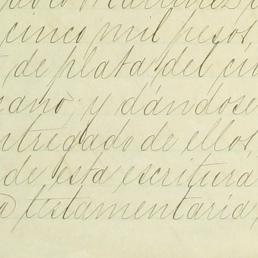 cinco mil pesos,
de plata del cu
cano, y dándose
ntregado de ellos,
de esta escritura
testamentaria,